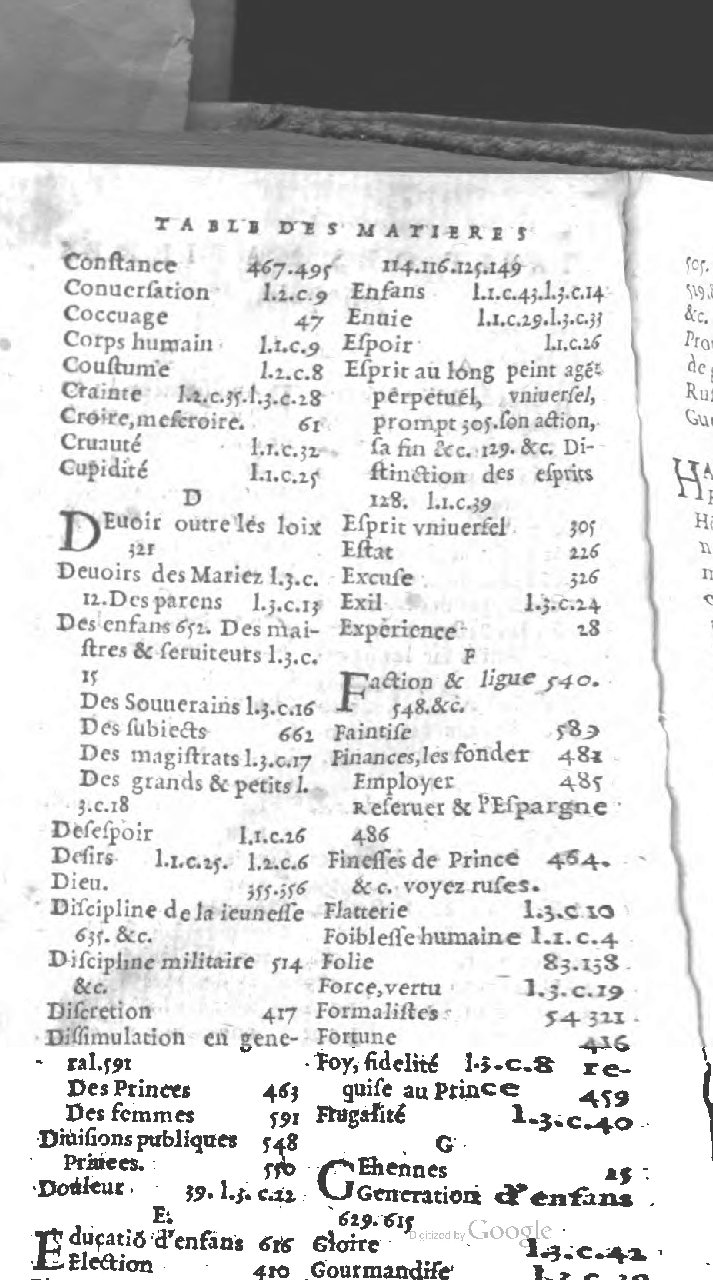 TABLE DES MATIERES
Conſtance 467.495
Conuerſation l.2.c.9
Coccuage 47
Corps humain l.1.c.9
Couſtume l.2.c.8
Crainte l.2.c.35.l.3.c.28
Croire, meſcroire. 61
Cruauté l.1.c.32
Cupidité l.1.c.25
D
DEuoir outre les loix
321
Deuoirs des Mariez l.3.c.
12. Des parens l.3.c.13
Des enfans 652. Des mai-
ſtres & ſeruiteurs l.3.c.
15
Des Souuerains l.3.c.16
Des ſubiects 662
Des magiſtrats l.3.c.17
Des grands & petits l.
3.c.18
Deſeſpoir l.1.c.26
Deſirs l.1.c.25. l.2.c.6
Dieu. 355.356
Diſcipline de la ieuneſſe
635. &c.
Diſcipline militaire 514
&c.
Diſcretion 417
Diſſimulation en gene-
ral.591
Des Princes 463
Des femmes 591
Diuiſions publiques 548
Princes. 550
Douleur. 39. l.3. c.22
E
Educatiõ d'enfans 616
Election 410
114.116.125.149
Enfans l.1.c.43.l.3.c.14
Enuie l.1.c.29.l.3.c.33
Eſpoir l.1.c.26
Eſprit au long peint agẽt
perpetuel, vniuerſel,
prompt 305.ſon action,
ſa fin &c. 129. &c. Di-
ſtinction des eſprits
128. l.1.c.39
Eſprit vniuerſel 305
Eſtat 226
Excuſe 326
Exil l.3.c.24
Experience 28
F
Faction & ligue 540.
548.&c.
Faintiſe 589
Finances, les fonder 481
Employer 485
Reſeruer & l'Eſpargne
486
Fineſſes de Prince 464.
&c. voyez ruſes.
Flatterie l.3.c.10
Foibleſſe humaine l.1.c.4
Folie 83.138
Force, vertu l.3.c.19
Formaliſtes 54 321
Fortune 416
Foy, fidelité l.3.c.8 re-
quiſe au Prince 459
Frugalité l.3.c.40
G
GEhennes 25
Generation d'enfans
629. 615
Gloire l.3.c.42
Gourmandiſe
Digitized by Google
505.
519.
&c.
Pro
de
Ruſ
Gue
HA